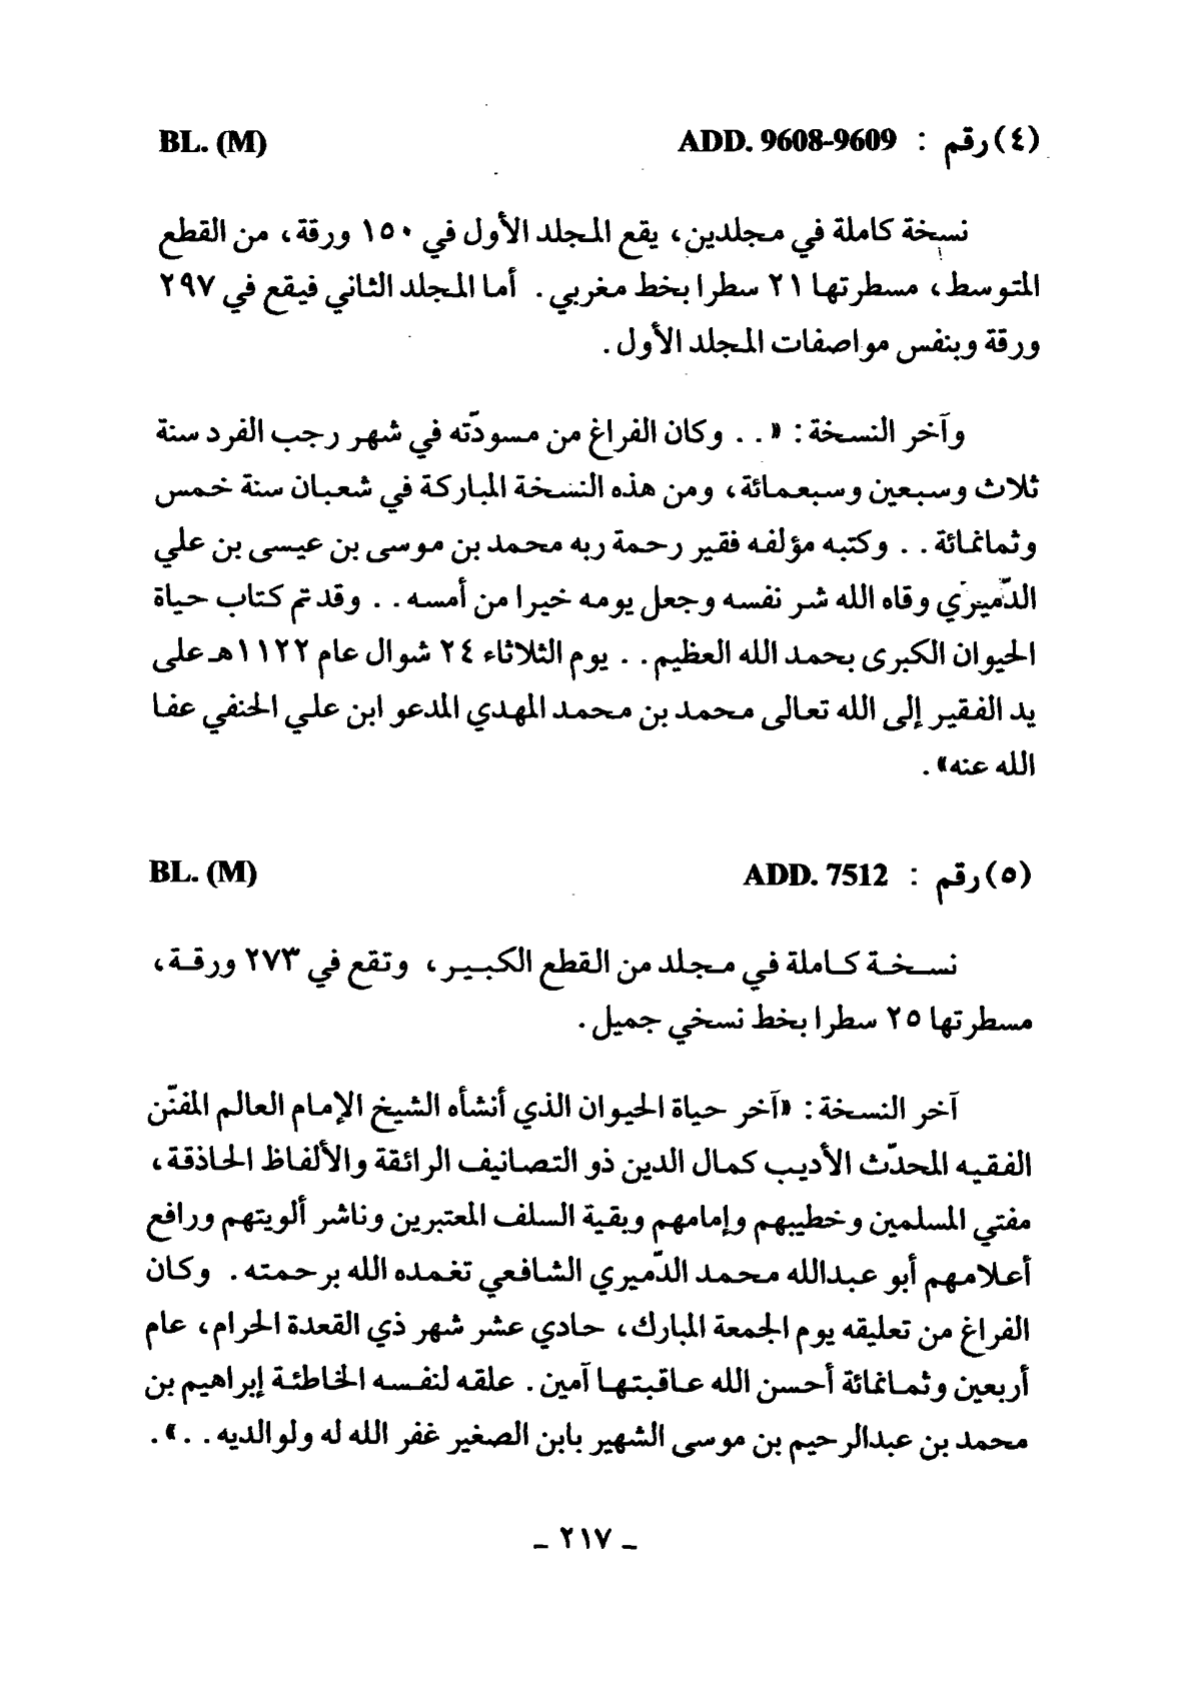 (٤) رقم : ADD. 9608-9609 BL. (M)
نسخة كاملة في مجلدين، يقع المجلد الأول في ١٥٠ ورقة، من القطع
المتوسط، مسطرتها ٢١ سطرا بخط مغربي. أما المجلد الثاني فيقع في ٢٩٧
ورقة وبنفس مواصفات المجلد الأول.
وآخر النسخة: «.. وكان الفراغ من مسودّته في شهر رجب الفرد سنة
ثلاث وسبعين وسبعمائة، ومن هذه النسخة المباركة في شعبان سنة خمس
وثمانمائة.. وكتبه مؤلفه فقير رحمة ربه محمد بن موسى بن عيسى بن علي
الدّميري وقاه الله شر نفسه وجعل يومه خيرا من أمسه.. وقد تم كتاب حياة
الحيوان الكبرى بحمد الله العظيم.. يوم الثلاثاء ٢٤ شوال عام ١١٢٢هـ على
يد الفقير إلى الله تعالى محمد بن محمد المهدي المدعو ابن علي الحنفي عفا
الله عنه».
(٥) رقم : ADD. 7512 BL. (M)
نسخة كاملة في مجلد من القطع الكبير، وتقع في ٢٧٣ ورقة،
مسطرتها ٢٥ سطرا بخط نسخي جميل.
آخر النسخة: «آخر حياة الحيوان الذي أنشأه الشيخ الإمام العالم المفنّن
الفقيه المحدّث الأديب كمال الدين ذو التصانيف الرائقة والألفاظ الحاذقة،
مفتي المسلمين وخطيبهم وإمامهم وبقية السلف المعتبرين وناشر ألويتهم ورافع
أعلامهم أبو عبدالله محمد الدّميري الشافعي تغمده الله برحمته. وكان
الفراغ من تعليقه يوم الجمعة المبارك، حادي عشر شهر ذي القعدة الحرام، عام
أربعين وثمانمائة أحسن الله عاقبتها آمين. علقه لنفسه الخاطئة إبراهيم بن
محمد بن عبدالرحيم بن موسى الشهير بابن الصغير غفر الله له ولوالديه..».
ـ ٢١٧ ـ